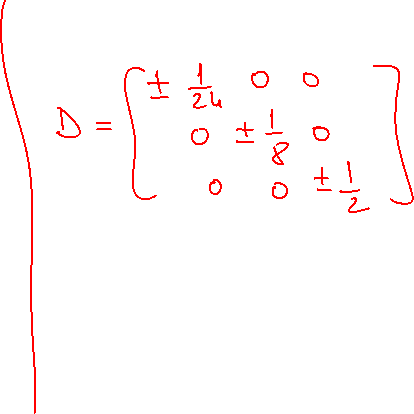 D = [ ± 1/24 0 0
0 ± 1/8 0
0 0 ± 1/2 ]